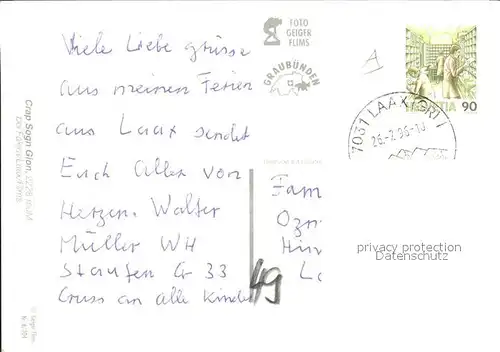 Viele Liebe grüsse
aus meinen Ferien
aus Laax sendet
Euch Allen von
Herzen. Walter
Müller WH
Staufen Gr 33
Gruss an alle Kinder
49
FOTO
GEIGER
FLIMS
GRAUBÜNDEN
HELVETIA 90
7031 LAAX (GR) 1
26.-2.96-10
Fam
Ozm
Hin
privacy protection
Datenschutz
Crap Sogn Gion, 2228 m üM
bei Flims-Laax/Films